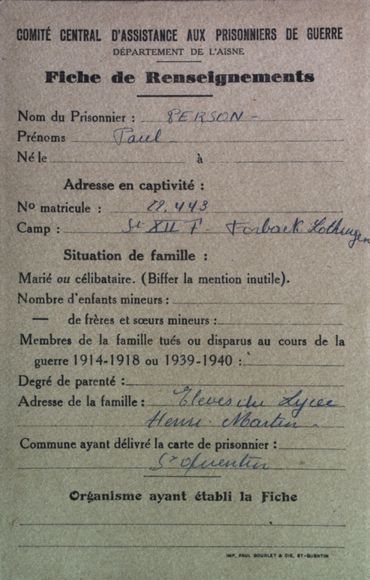 COMITÉ CENTRAL D'ASSISTANCE AUX PRISONNIERS DE GUERRE
DÉPARTEMENT DE L'AISNE
Fiche de Renseignements
Nom du Prisonnier : PERSON -
Prénoms Paul -
Né le à
Adresse en captivité :
No matricule : 28.443
Camp : St XII F - Forback Lothringen
Situation de famille :
Marié ou célibataire. (Biffer la mention inutile).
Nombre d'enfants mineurs :
— de frères et sœurs mineurs :
Membres de la famille tués ou disparus au cours de la
guerre 1914-1918 ou 1939-1940 :
Degré de parenté :
Adresse de la famille : Eleves du Lycée
Henri Martin -
Commune ayant délivré la carte de prisonnier :
St Quentin
Organisme ayant établi la Fiche
IMP. PAUL BOURLET & CIE, ST-QUENTIN